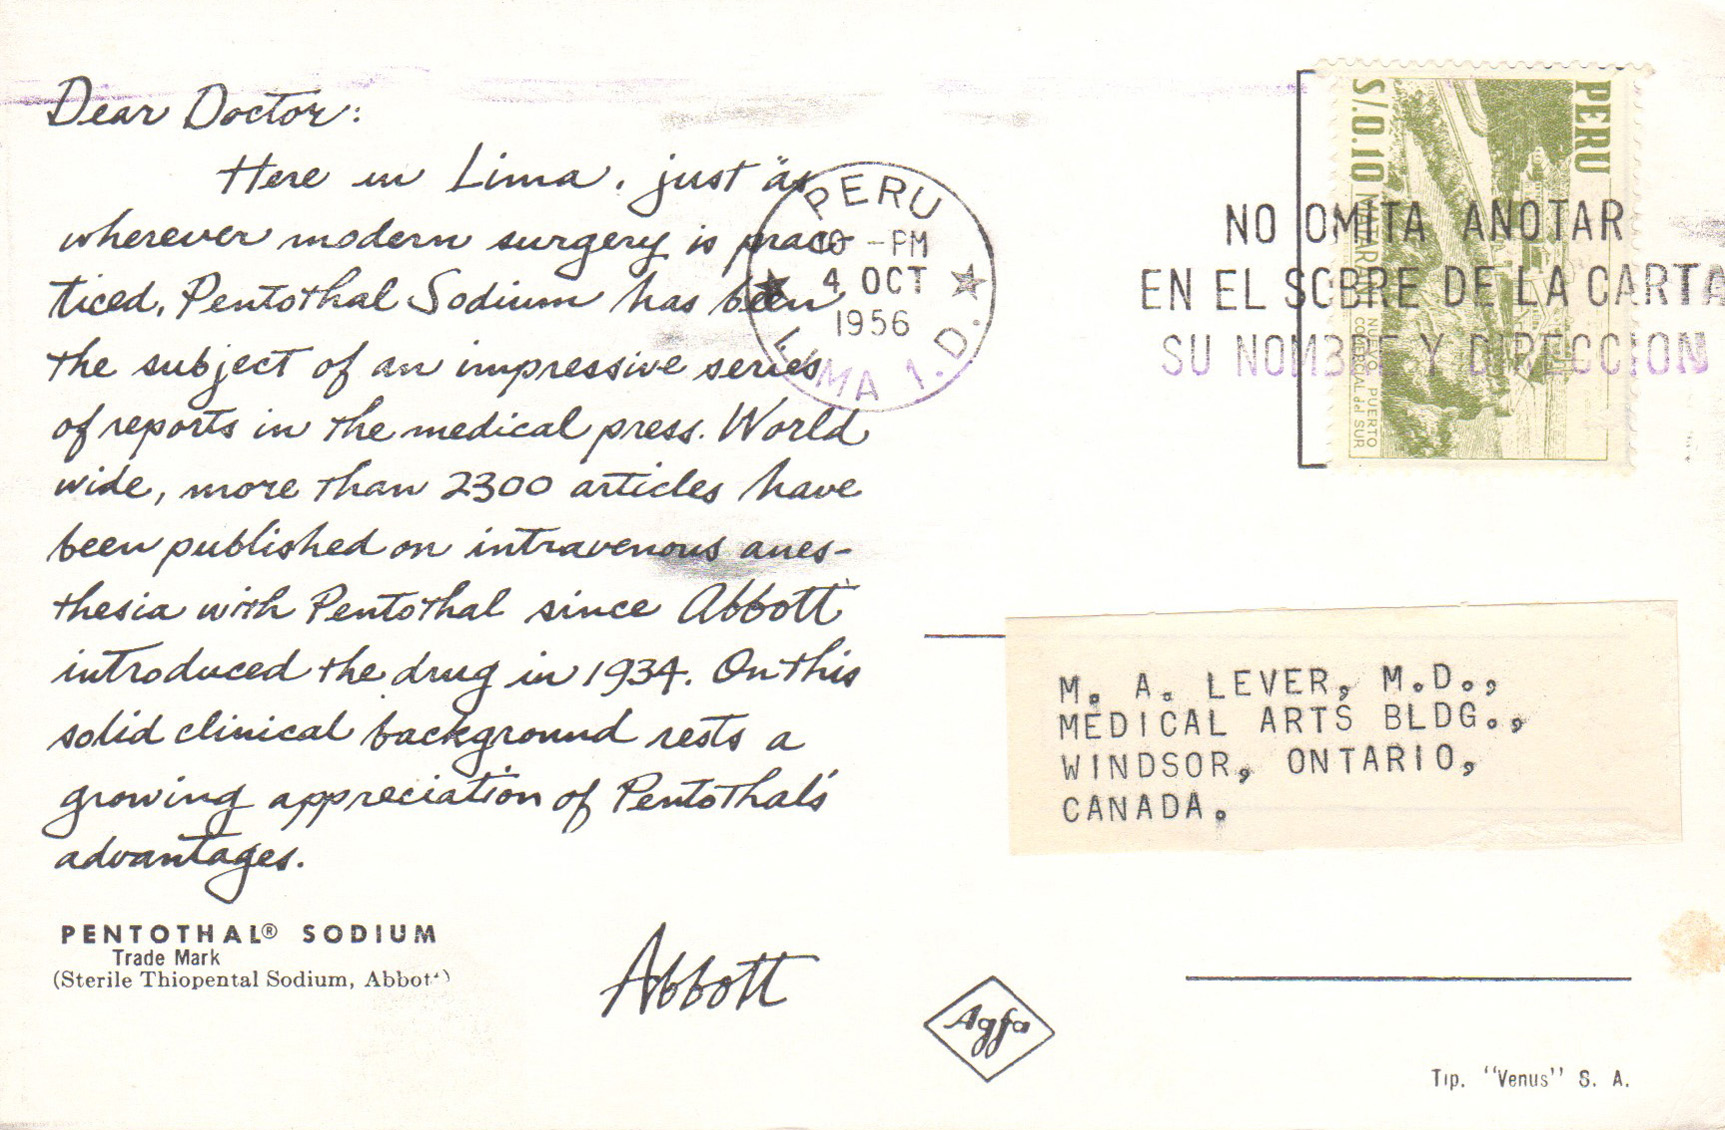 Dear Doctor:
Here in Lima, just as
wherever modern surgery is prac-
ticed, Pentothal Sodium has been
the subject of an impressive series
of reports in the medical press. World
wide, more than 2300 articles have
been published on intravenous anes-
thesia with Pentothal since Abbott
introduced the drug in 1934. On this
solid clinical background rests a
growing appreciation of Pentothal's
advantages.
PENTOTHAL® SODIUM
Trade Mark
(Sterile Thiopental Sodium, Abbott)
Abbott
PERU
-PM
4 OCT
1956
LIMA 1.D.
NO OMITA ANOTAR
EN EL SOBRE DE LA CARTA
SU NOMBRE Y DIRECCION
PERU
S/.0.10
MATARANI
NUEVO PUERTO
COMERCIAL del SUR
M. A. LEVER, M.D.,
MEDICAL ARTS BLDG.,
WINDSOR, ONTARIO,
CANADA.
Agfa
Tip. "Venus" S. A.